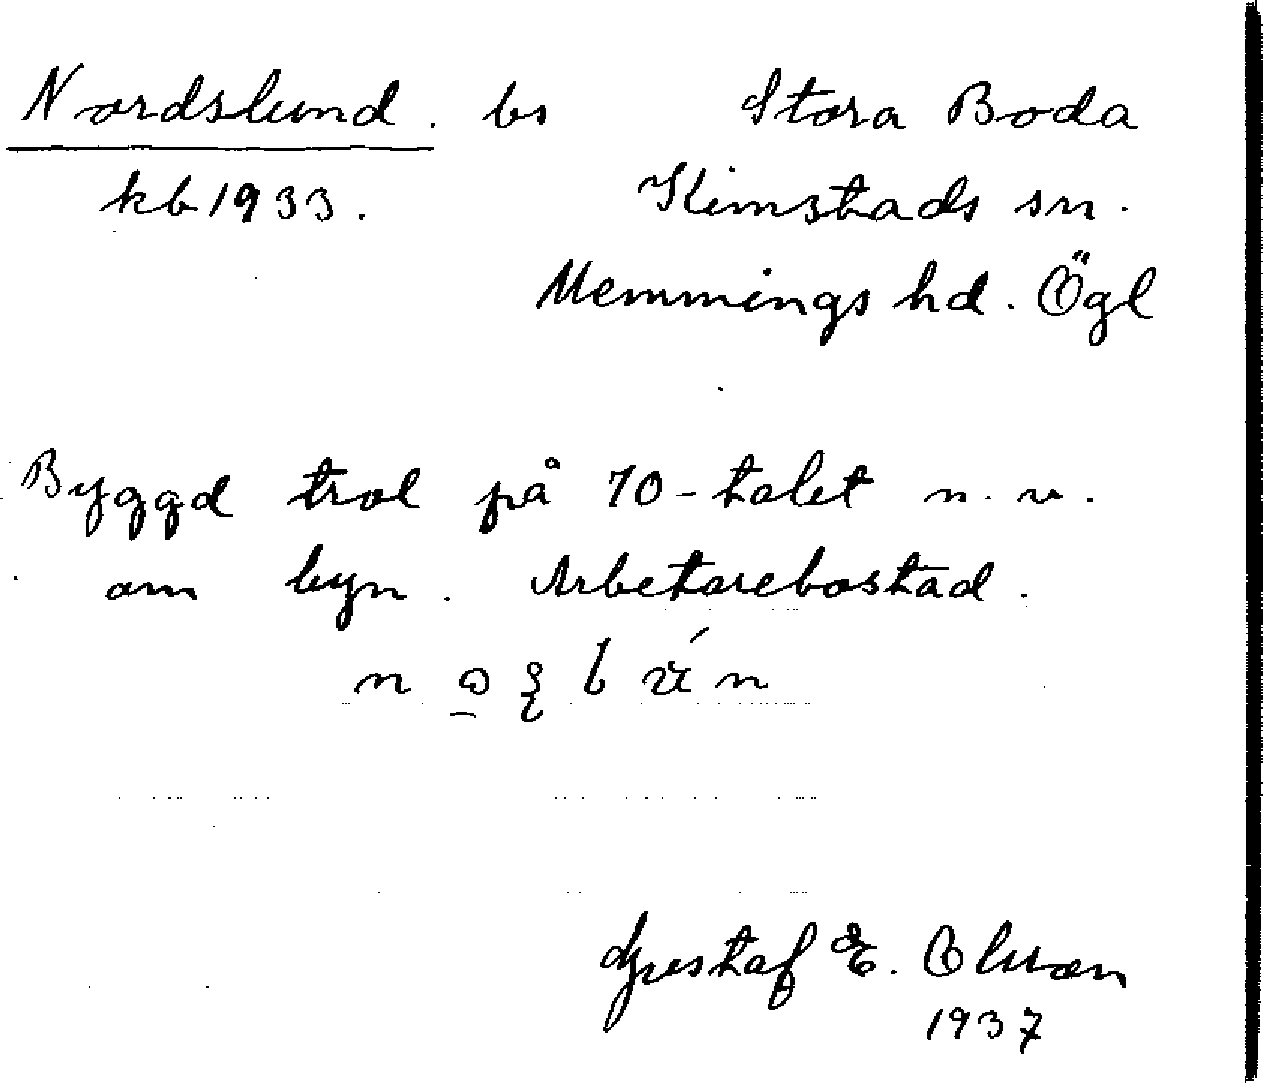 Nordslund. bs Stora Boda
kb 1933. Kimstads sn.
Memmings hd. Ögl
Byggd trol på 70-talet n. v.
om byn. Arbetarebostad.
Gustaf E. Olsson
1937